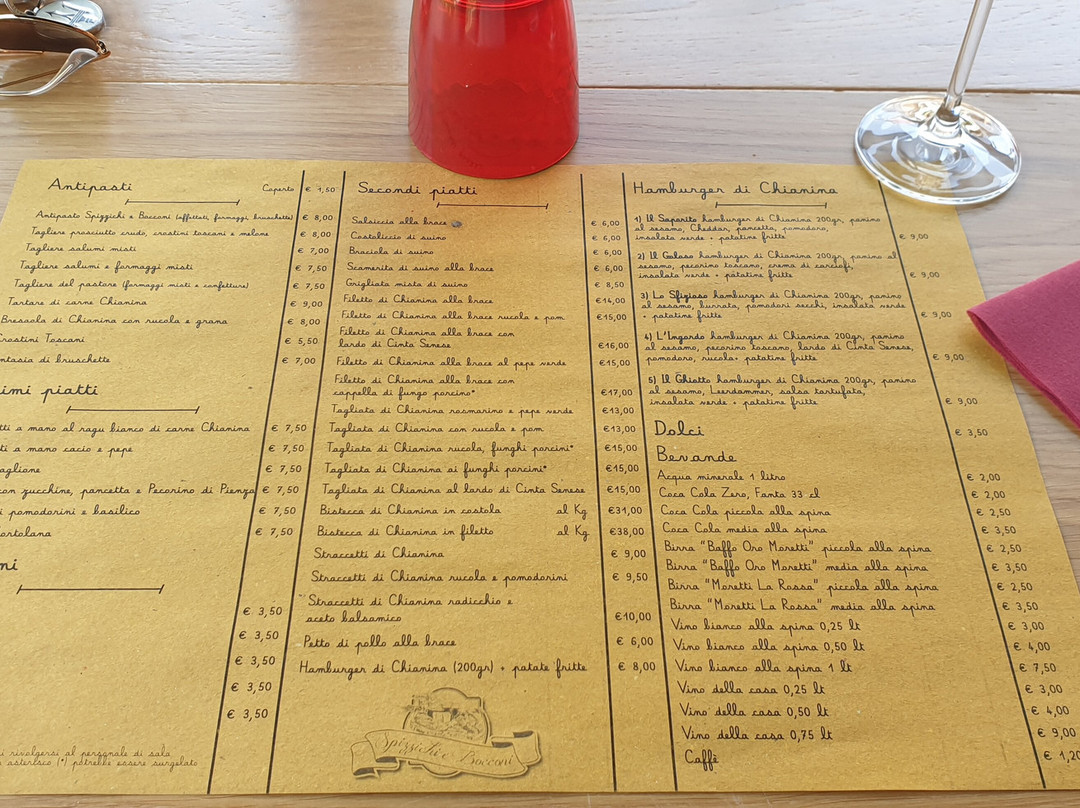 Antipasti
Coperto € 1,50
Antipasto Spizzichi e Bocconi (affettati, formaggi, bruschette) € 8,00
Tagliere prosciutto crudo, crostini toscani e melone € 8,00
Tagliere salumi misti € 7,00
Tagliere salumi e formaggi misti € 7,50
Tagliere del pastore (formaggi misti e confetture) € 7,50
Tartare di carne Chianina € 9,00
Bresaola di Chianina con rucola e grana € 8,00
rostini Toscani € 5,50
ntasia di bruschette € 7,00
imi piatti
tti a mano al ragu bianco di carne Chianina € 7,50
ti a mano cacio e pepe € 7,50
aglione € 7,50
con zucchine, pancetta e Pecorino di Pienza € 7,50
i pomodorini e basilico € 7,50
ortolana € 7,50
ni
€ 3,50
€ 3,50
€ 3,50
€ 3,50
€ 3,50
i rivolgersi al personale di sala
asterisco (*) potrebbe essere surgelato
Secondi piatti
Salsiccia alla brace € 6,00
Costoliccio di suino € 6,00
Braciola di suino € 6,00
Scamerita di suino alla brace € 6,00
Grigliata mista di suino € 8,50
Filetto di Chianina alla brace €14,00
Filetto di Chianina alla brace rucola e pom €15,00
Filetto di Chianina alla brace con
lardo di Cinta Senese €16,00
Filetto di Chianina alla brace al pepe verde €15,00
Filetto di Chianina alla brace con
cappella di fungo porcino* €17,00
Tagliata di Chianina rosmarino e pepe verde €13,00
Tagliata di Chianina con rucola e pom €13,00
Tagliata di Chianina rucola, funghi porcini* €15,00
Tagliata di Chianina ai funghi porcini* €15,00
Tagliata di Chianina al lardo di Cinta Senese €15,00
Bistecca di Chianina in costola al Kg €31,00
Bistecca di Chianina in filetto al Kg €38,00
Straccetti di Chianina € 9,00
Straccetti di Chianina rucola e pomodorini € 9,50
Straccetti di Chianina radicchio e
aceto balsamico €10,00
Petto di pollo alla brace € 6,00
Hamburger di Chianina (200gr) + patate fritte € 8,00
Spizzichi e Bocconi
Hamburger di Chianina
1) Il Saporito hamburger di Chianina 200gr, panino
al sesamo, Cheddar, pancetta, pomodoro,
insalata verde + patatine fritte € 9,00
2) Il Goloso hamburger di Chianina 200gr, panino al
sesamo, pecorino toscano, crema di carciofi,
insalata verde + patatine fritte € 9,00
3) Lo Sfizioso hamburger di Chianina 200gr, panino
al sesamo, burrata, pomodori secchi, insalata verde
+ patatine fritte € 9,00
4) L'Ingordo hamburger di Chianina 200gr, panino
al sesamo, pecorino toscano, lardo di Cinta Senese,
pomodoro, rucola+ patatine fritte € 9,00
5) Il Ghiotto hamburger di Chianina 200gr, panino
al sesamo, Leerdammer, salsa tartufata,
insalata verde + patatine fritte € 9,00
Dolci € 3,50
Bevande
Acqua minerale 1 litro € 2,00
Coca Cola Zero, Fanta 33 cl € 2,00
Coca Cola piccola alla spina € 2,50
Coca Cola media alla spina € 3,50
Birra "Baffo Oro Moretti" piccola alla spina € 2,50
Birra "Baffo Oro Moretti" media alla spina € 3,50
Birra "Moretti La Rossa" piccola alla spina € 2,50
Birra "Moretti La Rossa" media alla spina € 3,50
Vino bianco alla spina 0,25 lt € 3,00
Vino bianco alla spina 0,50 lt € 4,00
Vino bianco alla spina 1 lt € 7,50
Vino della casa 0,25 lt € 3,00
Vino della casa 0,50 lt € 4,00
Vino della casa 0,75 lt € 9,00
Caffè € 1,20